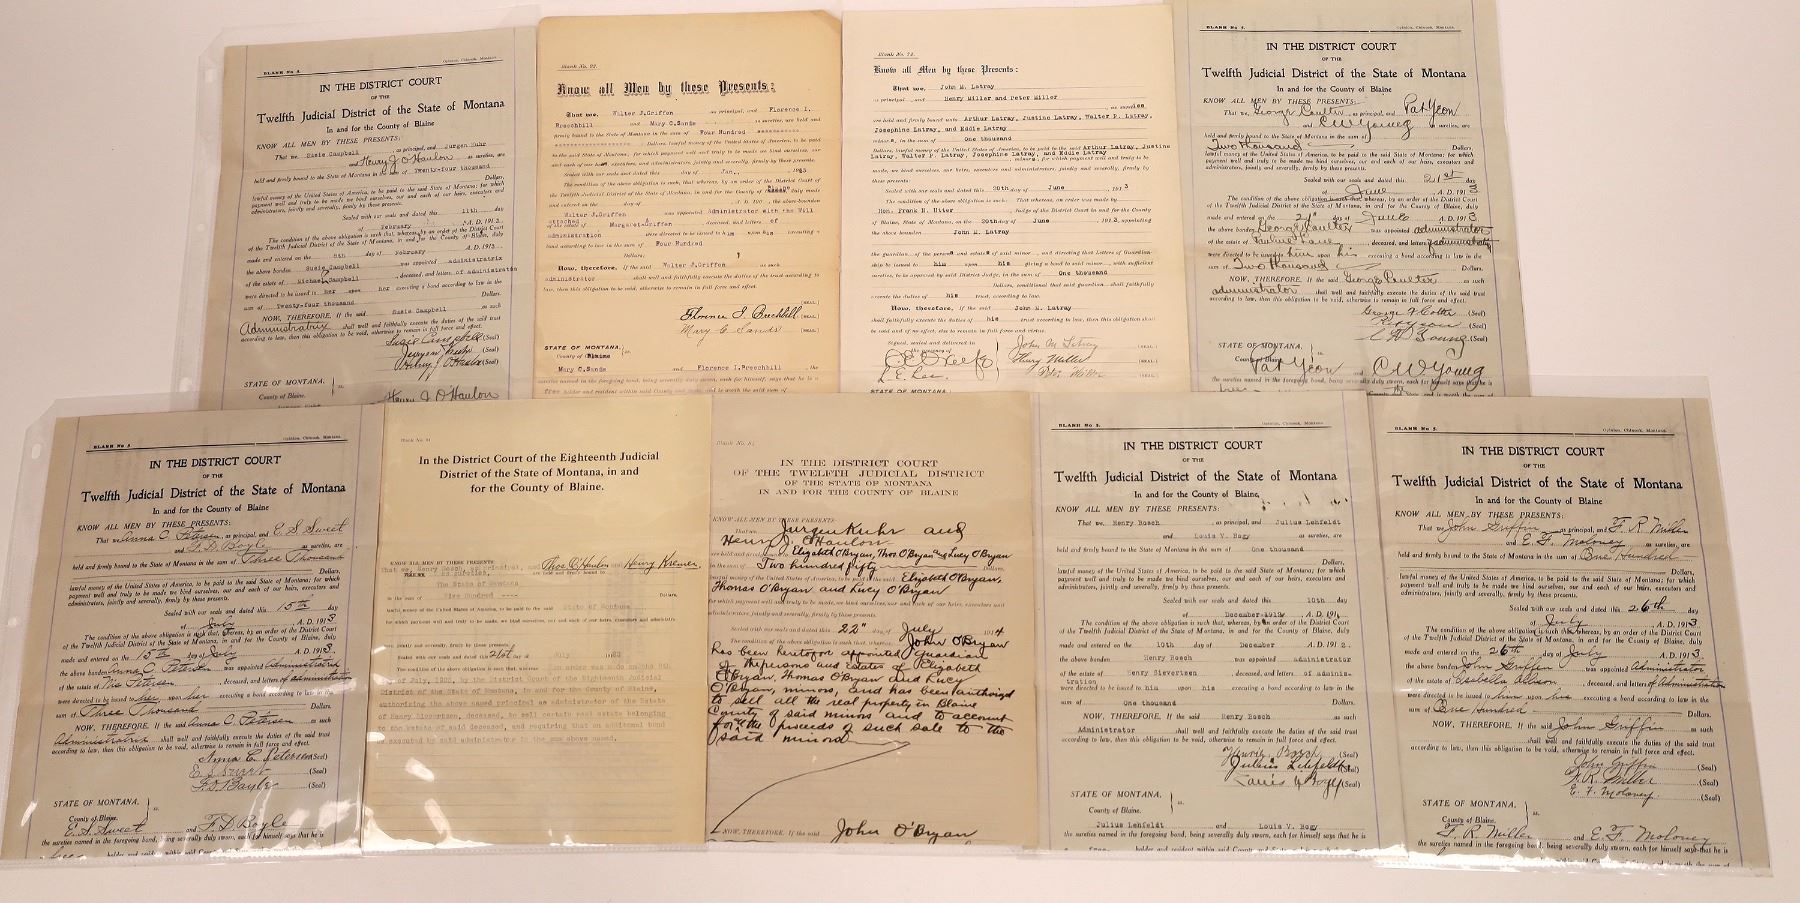 BLANK No 5. Opinion, Chinook, Montana.
IN THE DISTRICT COURT
OF THE
Twelfth Judicial District of the State of Montana
In and for the County of Blaine
KNOW ALL MEN BY THESE PRESENTS:
That we, Susie Campbell, as principal, and Jurgen Kuhr
and Henry J O'Hanlon as sureties, are
held and firmly bound to the State of Montana in the sum of Twenty-four thousand
Dollars,
lawful money of the United States of America, to be paid to the said State of Montana; for which
payment well and truly to be made we bind ourselves, our and each of our heirs, executors and
administrators, jointly and severally, firmly by these presents.
Sealed with our seals and dated this 11th day
of February A.D. 1913
The condition of the above obligation is such that, whereas, by an order of the District Court
of the Twelfth Judicial District of the State of Montana, in and for the County of Blaine, duly
made and entered on the 8th day of February A.D. 1913
the above bonden Susie Campbell was appointed administratrix
of the estate of Michael Campbell, deceased, and letters of administration
were directed to be issued to her upon her executing a bond according to law in the
sum of Twenty-four thousand Dollars.
NOW, THEREFORE, If the said Susie Campbell as such
Administratrix shall well and faithfully execute the duties of the said trust
according to law, then this obligation to be void, otherwise to remain in full force and effect.
Susie Campbell (Seal)
Jurgen Kuhr (Seal)
Henry J O'Hanlon (Seal)
STATE OF MONTANA, ss.
Henry J O'Hanlon
Blank No. 92.
Know all Men by these Presents:
That we, Walter J. Griffen as principal, and Florence I.
Breechbill and Mary C. Sands as sureties, are held and
firmly bound to the State of Montana in the sum of Four Hundred
Dollars, lawful money of the United States of America, to be paid
to the said State of Montana, for which payment well and truly to be made, we bind ourselves, our
and each of our heirs, executors and administrators, jointly and severally, firmly by these presents.
Sealed with our seals and dated this day of Jan., 1913
The condition of the above obligation is such, that whereas, by an order of the District Court of
the Twelfth Judicial District of the State of Montana, in and for the County of Blaine duly made
and entered on the day of A.D. 190 , the above-bounden
Walter J. Griffen was appointed Administrator with the Will
attached of the estate of Margaret Griffen deceased, and letters of
administration were directed to be issued to him upon his executing a
bond according to law in the sum of Four Hundred
Dollars.
Now, therefore, if the said Walter J. Griffen as such
administrator shall well and faithfully execute the duties of the trust according to
law, then this obligation to be void, otherwise to remain in full force and effect.
Florence I. Breechbill (SEAL)
Mary C. Sands (SEAL)
STATE OF MONTANA
County of Blaine ss.
Mary C. Sands and Florence I. Breechbill, the
sureties named in the foregoing bond, being severally duly sworn, each for himself, says that he is a
Blank No. 72.
Know all Men by these Presents:
That we, John M. Latray
as principal, and Henry Miller and Peter Miller, as sureties
are held and firmly bound unto Arthur Latray, Justine Latray, Walter P. Latray,
Josephine Latray, and Eddie Latray
minors, in the sum of One thousand
Dollars, lawful money of the United States of America, to be paid to the said Arthur Latray, Justine
Latray, Walter P. Latray, Josephine Latray, and Eddie Latray
minors, for which payment well and truly to be
made, we bind ourselves, our heirs, executors and administrators, jointly and severally, firmly by
these presents:
Sealed with our seals and dated this 20th day of June, 1913
The condition of the above obligation is such: That whereas, an order was made by
Hon. Frank N. Utter, Judge of the District Court in and for the County
of Blaine, State of Montana, on the 20th day of June, 1913, appointing
the above bounden John M. Latray
the guardian, of the persons and estates of said minor, and directed that Letters of Guardian-
ship be issued to him upon his giving a bond to said minor, with sufficient
sureties, to be approved by said District Judge, in the sum of One thousand
Dollars, conditioned that said guardian, shall faithfully
execute the duties of his trust, according to law.
Now, therefore, if the said John M. Latray
shall faithfully execute the duties of his trust according to law, then this obligation shall
be void and of no effect, else to remain in full force and virtue.
Signed, sealed and delivered in the presence of
L. E. Lee
John M Latray (SEAL)
Henry Miller (SEAL)
Peter Miller (SEAL)
STATE OF MONTANA
BLANK No 5. Opinion, Chinook, Montana.
IN THE DISTRICT COURT
OF THE
Twelfth Judicial District of the State of Montana
In and for the County of Blaine
KNOW ALL MEN BY THESE PRESENTS:
That we, George Coulter, as principal, and Pat Yeon
and C W Young as sureties, are
held and firmly bound to the State of Montana in the sum of
Two thousand Dollars,
lawful money of the United States of America, to be paid to the said State of Montana; for which
payment well and truly to be made we bind ourselves, our and each of our heirs, executors and
administrators, jointly and severally, firmly by these presents.
Sealed with our seals and dated this 21st day
of June A.D. 1913
The condition of the above obligation is such that, whereas, by an order of the District Court
of the Twelfth Judicial District of the State of Montana, in and for the County of Blaine, duly
made and entered on the 21" day of June A.D. 1913
the above bonden George Coulter was appointed administrator
of the estate of deceased, and letters of administration
were directed to be issued to him upon his executing a bond according to law in the
sum of Two thousand Dollars.
NOW, THEREFORE, If the said George Coulter as such
administrator shall well and faithfully execute the duties of the said trust
according to law, then this obligation to be void, otherwise to remain in full force and effect.
(Seal)
Pat Yeon (Seal)
C W Young (Seal)
STATE OF MONTANA, ss.
County of Blaine.
Pat Yeon and C W Young
the sureties named in the foregoing bond, being severally duly sworn, each for himself says that he is
BLANK No 5. Opinion, Chinook, Montana.
IN THE DISTRICT COURT
OF THE
Twelfth Judicial District of the State of Montana
In and for the County of Blaine
KNOW ALL MEN BY THESE PRESENTS:
That we Anna C. Petersen, as principal, and E S Sweet
and F. D. Boyle as sureties, are
held and firmly bound to the State of Montana in the sum of Three Thousand
Dollars,
lawful money of the United States of America, to be paid to the said State of Montana; for which
payment well and truly to be made we bind ourselves, our and each of our heirs, executors and
administrators, jointly and severally, firmly by these presents.
Sealed with our seals and dated this 15th day
of July A.D. 1913
The condition of the above obligation is such that, whereas, by an order of the District Court
of the Twelfth Judicial District of the State of Montana, in and for the County of Blaine, duly
made and entered on the 15th day of July A.D. 1913.
the above bonden Anna C. Petersen was appointed Administratrix
of the estate of Petersen, deceased, and letters of administration
were directed to be issued to her upon her executing a bond according to law in the
sum of Three Thousand Dollars.
NOW, THEREFORE, If the said Anna C. Petersen as such
Administratrix shall well and faithfully execute the duties of the said trust
according to law, then this obligation to be void, otherwise to remain in full force and effect.
Anna C. Petersen (Seal)
E S Sweet (Seal)
F. D. Boyle (Seal)
STATE OF MONTANA, ss.
County of Blaine.
E. S. Sweet and F. D. Boyle
the sureties named in the foregoing bond, being severally duly sworn, each for himself says that he is
holder and resident within said County and State
In the District Court of the Eighteenth Judicial
District of the State of Montana, in and
for the County of Blaine.
KNOW ALL MEN BY THESE PRESENTS
That we, Henry Bosch, as principal, and Thos O'Hanlon and Henry Kremer
as sureties, are held and firmly bound to
The State of Montana
in the sum of Five Hundred ---- Dollars,
lawful money of the United States of America, to be paid to the said State of Montana
for which payment, well and truly to be made, we bind ourselves, our and each of our heirs, executors and administra-
jointly and severally, firmly by these presents.
Sealed with our seals and dated this 21st day of July
The condition of the above obligation is such, that whereas an order was made on the 8th
day of July, by the District Court of the Eighteenth Judicial
District of the State of Montana, in and for the County of Blaine,
authorizing the above named principal as administrator of the Estate
of Henry Sievertsen, deceased, to sell certain real estate belonging
to the estate of said deceased, and requiring that an additional bond
be executed by said administrator in the sum above named.
IN THE DISTRICT COURT
OF THE TWELFTH JUDICIAL DISTRICT
OF THE STATE OF MONTANA
IN AND FOR THE COUNTY OF BLAINE
KNOW ALL MEN BY THESE PRESENTS:
That we Jurgen Kuhr and
Henry J. O'Hanlon
are held and firmly bound to Elizabeth O'Bryan, Thos O'Bryan and Lucy O'Bryan
in the sum of Two hundred fifty Dollars,
lawful money of the United States of America, to be paid to the said Elizabeth O'Bryan,
Thomas O'Bryan and Lucy O'Bryan
for which payment well and truly to be made, we bind ourselves, our and each of our heirs, executors and admin-
istrators, jointly and severally, firmly by these presents.
Sealed with our seals and dated this 22" day of July 1914
The condition of the above obligation is such, that whereas John O'Bryan
has been heretofore appointed Guardian
of the persons and estates of Elizabeth
O'Bryan, Thomas O'Bryan and Lucy
O'Bryan, minors, and has been authorized
to sell all the real property in Blaine
County of said minors and to account
for the proceeds of such sale to the
said minors
NOW, THEREFORE, If the said John O'Bryan
BLANK No 5. Opinion, Chinook, Montana.
IN THE DISTRICT COURT
OF THE
Twelfth Judicial District of the State of Montana
In and for the County of Blaine,
KNOW ALL MEN BY THESE PRESENTS:
That we, Henry Bosch, as principal, and Julius Lehfeldt
and Louis V. Bogy as sureties, are
held and firmly bound to the State of Montana in the sum of One thousand
Dollars,
lawful money of the United States of America, to be paid to the said State of Montana; for which
payment well and truly to be made we bind ourselves, our and each of our heirs, executors and
administrators, jointly and severally, firmly by these presents.
Sealed with our seals and dated this 10th day
of December 1912 A.D. 191
The condition of the above obligation is such that, whereas, by an order of the District Court
of the Twelfth Judicial District of the State of Montana, in and for the County of Blaine, duly
made and entered on the 10th day of December A.D. 1912.
the above bonden Henry Bosch was appointed administrator
of the estate of Henry Sievertsen deceased, and letters of adminis-
tration
were directed to be issued to him upon his executing a bond according to law in the
sum of One thousand Dollars.
NOW, THEREFORE, If the said Henry Bosch as such
Administrator shall well and faithfully execute the duties of the said trust
according to law, then this obligation to be void, otherwise to remain in full force and effect.
Henry Bosch (Seal)
Julius Lehfeldt (Seal)
Louis V Bogy (Seal)
STATE OF MONTANA, ss.
County of Blaine.
Julius Lehfeldt and Louis V. Bogy
the sureties named in the foregoing bond, being severally duly sworn, each for himself says that he is
a free holder and resident within said County and State
BLANK No 5. Opinion, Chinook, Montana.
IN THE DISTRICT COURT
OF THE
Twelfth Judicial District of the State of Montana
In and for the County of Blaine
KNOW ALL MEN BY THESE PRESENTS:
That we John Griffin, as principal, and F. R. Miller
and E. F. Moloney as sureties, are
held and firmly bound to the State of Montana in the sum of One Hundred
Dollars,
lawful money of the United States of America, to be paid to the said State of Montana; for which
payment well and truly to be made we bind ourselves, our and each of our heirs, executors and
administrators, jointly and severally, firmly by these presents.
Sealed with our seals and dated this 26th day
of July A.D. 1913
The condition of the above obligation is such that, whereas, by an order of the District Court
of the Twelfth Judicial District of the State of Montana, in and for the County of Blaine, duly
made and entered on the 26th day of July A.D. 1913.
the above bonden John Griffin was appointed Administrator
of the estate of Isabella Allison, deceased, and letters of Administration
were directed to be issued to him upon his executing a bond according to law in the
sum of One Hundred Dollars.
NOW, THEREFORE, If the said John Griffin as such
shall well and faithfully execute the duties of the said trust
according to law, then this obligation to be void, otherwise to remain in full force and effect.
John Griffin (Seal)
F. R. Miller (Seal)
E. F. Moloney. (Seal)
STATE OF MONTANA, ss.
County of Blaine.
F. R. Miller and E. F. Moloney
the sureties named in the foregoing bond, being severally duly sworn, each for himself says that he is